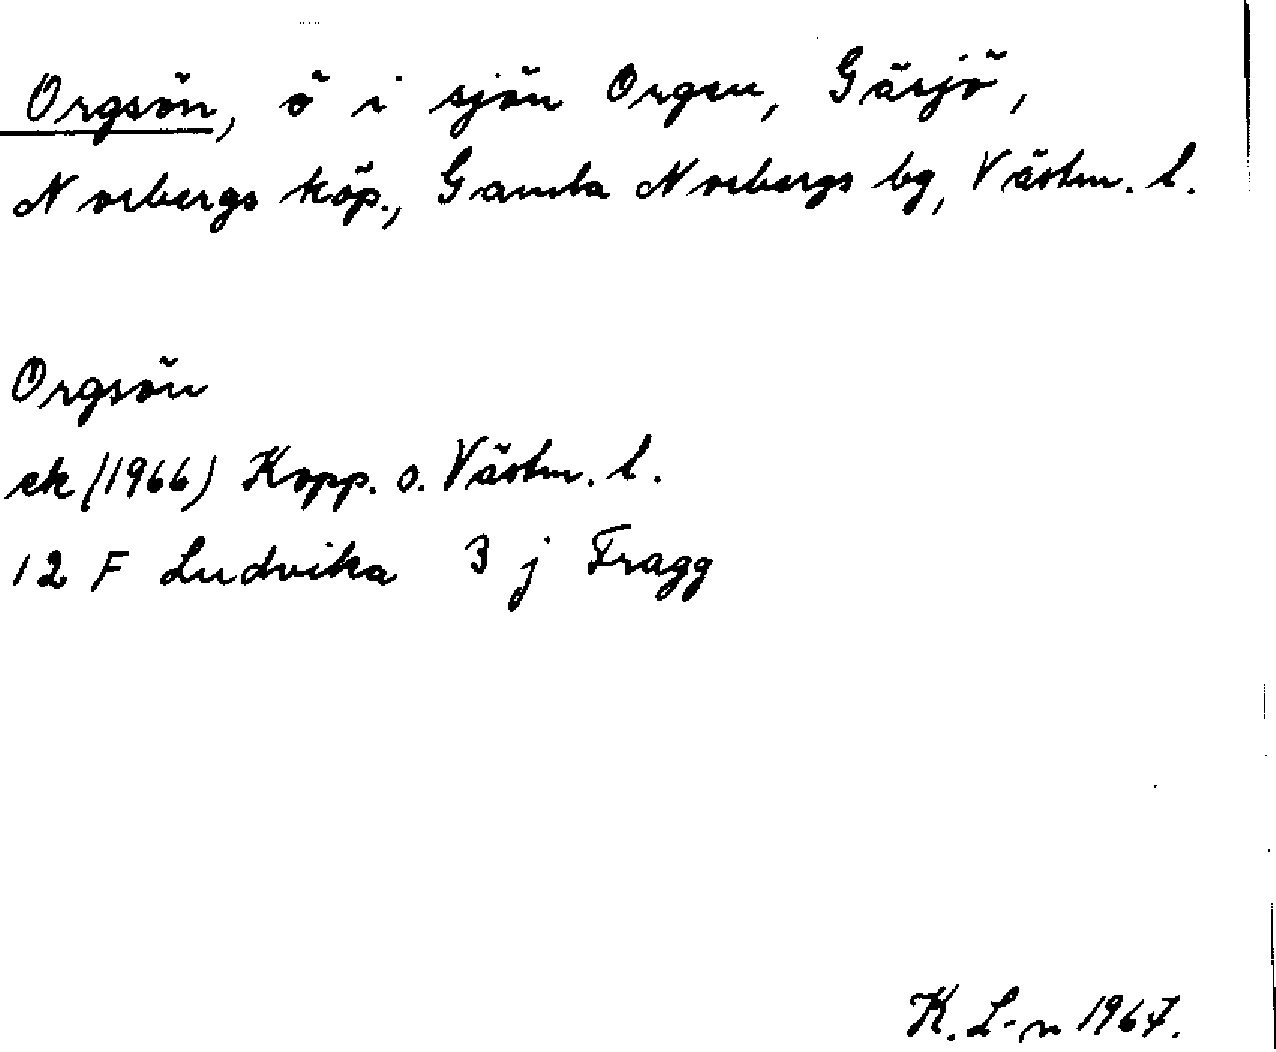 Orgsön, ö i sjön Orgen, Gäsjö,
Norbergs köp., Gamla Norbergs bg, Västm. l.
Orgsön
ek (1966) Kopp. o. Västm. l.
12 F Ludvika 3 j Fragg
K. L-n 1967.